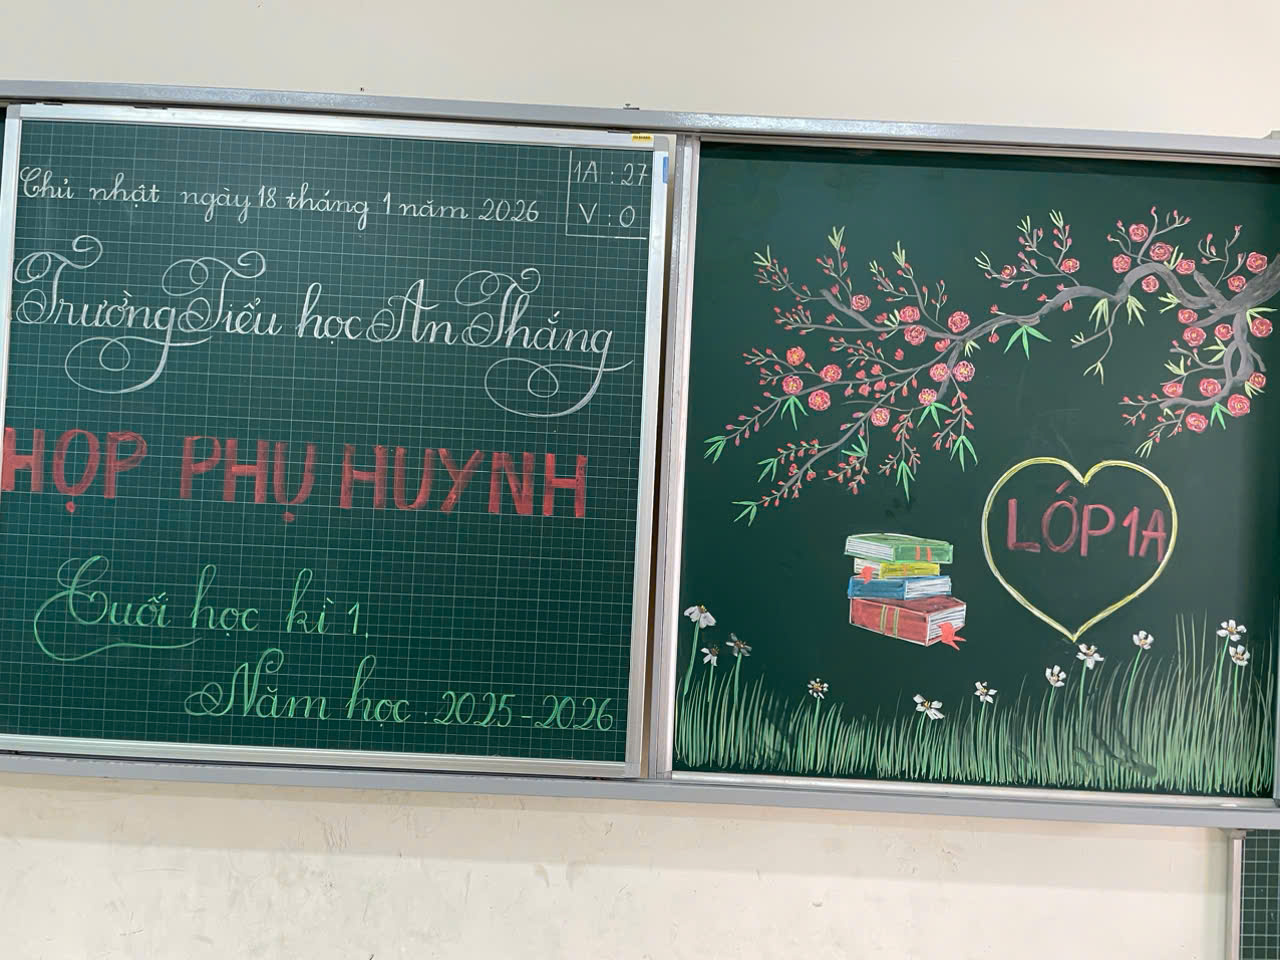 Chủ nhật ngày 18 tháng 1 năm 2026
1A : 27
V : 0
Trường Tiểu học An Thắng
HỌP PHỤ HUYNH
Cuối học kì 1.
Năm học : 2025 - 2026
LỚP 1A